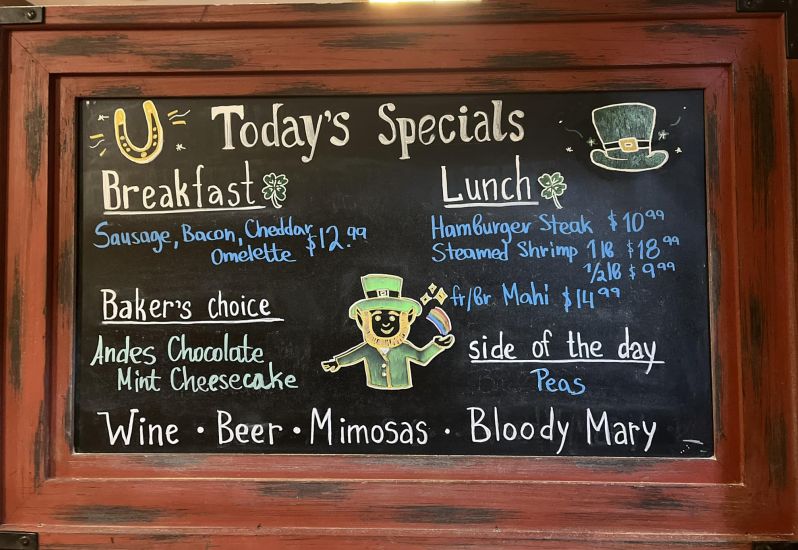 Today's Specials
Breakfast
Sausage, Bacon, Cheddar
Omelette $12.99
Baker's choice
Andes Chocolate
Mint Cheesecake
Lunch
Hamburger Steak $10.99
Steamed Shrimp 1 lb $18.99
1/2 lb $9.99
fr/Br Mahi $14.99
side of the day
Peas
Wine • Beer • Mimosas • Bloody Mary